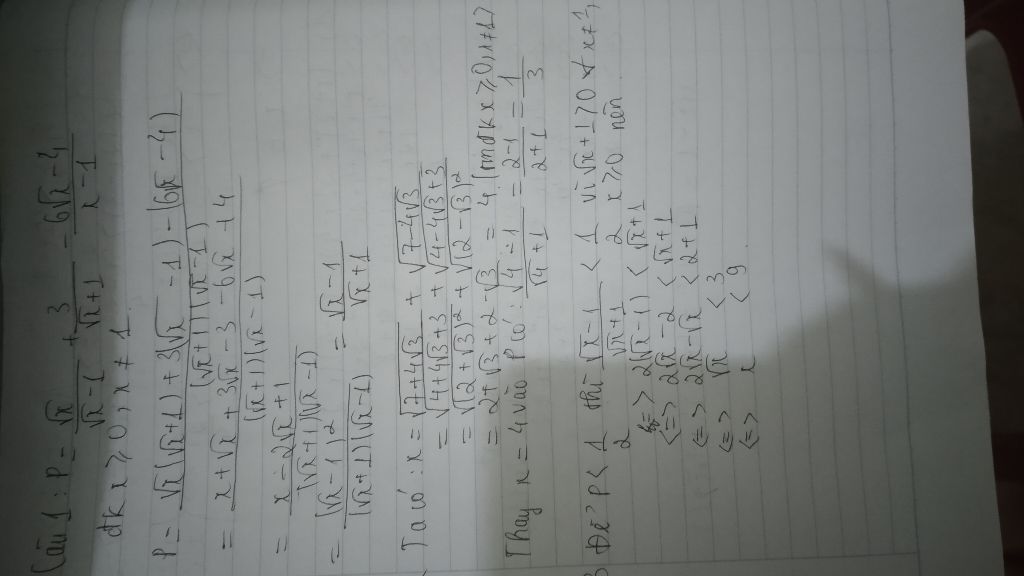 Câu 1: P = √x/(√x-1) + 3/(√x+1) - (6√x-4)/(x-1)
đk x ≥ 0, x ≠ 1
P = (√x(√x+1)+3(√x-1)-(6√x-4))/((√x+1)(√x-1))
= (x+√x+3√x-3-6√x+4)/((√x+1)(√x-1))
= (x-2√x+1)/((√x+1)(√x-1))
= (√x-1)²/((√x+1)(√x-1)) = (√x-1)/(√x+1)
Ta có: x = √(7+4√3) + √(7-4√3)
= √(4+4√3+3) + √(4-4√3+3)
= √(2+√3)² + √(2-√3)²
= 2+√3+2-√3 = 4 (tmđk x ≥ 0, x ≠ 1)
Thay x = 4 vào P có: (√4-1)/(√4+1) = (2-1)/(2+1) = 1/3
Để P < 1/2 thì (√x-1)/(√x+1) < 1/2 vì √x+1 > 0 ∀ x ≠ 1,
x ≥ 0 nên
<=> 2(√x-1) < √x+1
<=> 2√x-2 < √x+1
<=> 2√x-√x < 2+1
<=> √x < 3
<=> x < 9